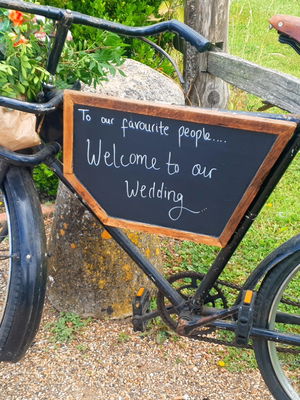 To our favourite people....
Welcome to our
Wedding...